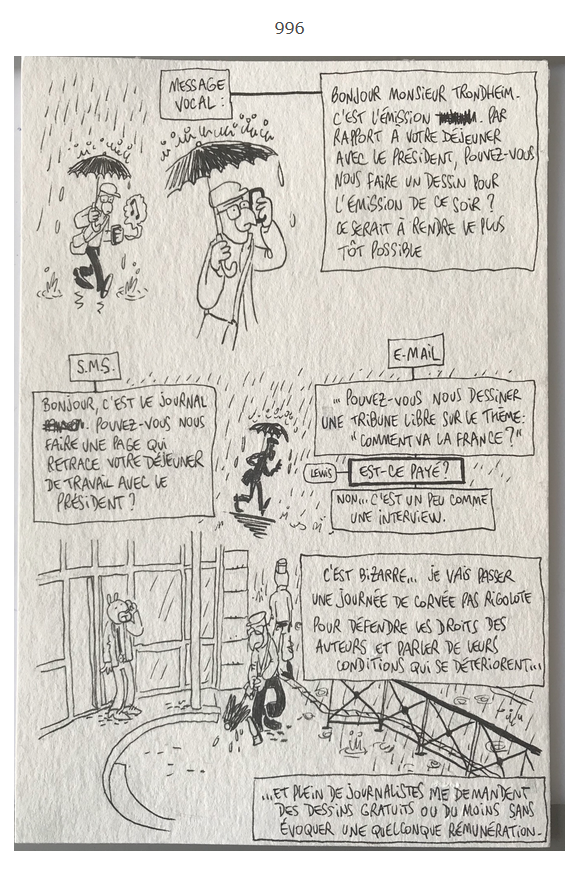 996
MESSAGE
VOCAL :
BONJOUR MONSIEUR TRONDHEIM.
C'EST L'ÉMISSION . PAR
RAPPORT A VOTRE DÉJEUNER
AVEC LE PRÉSIDENT, POUVEZ-VOUS
NOUS FAIRE UN DESSIN POUR
L'ÉMISSION DE CE SOIR ?
CE SERAIT À RENDRE LE PLUS
TÔT POSSIBLE
S.M.S.
BONJOUR, C'EST LE JOURNAL
. POUVEZ-VOUS NOUS
FAIRE UNE PAGE QUI
RETRACE VOTRE DÉJEUNER
DE TRAVAIL AVEC LE
PRÉSIDENT ?
E-MAIL
... POUVEZ-VOUS NOUS DESSINER
UNE TRIBUNE LIBRE SUR LE THÈME:
"COMMENT VA LA FRANCE ?"
LEWIS
EST-CE PAYÉ ?
NON... C'EST UN PEU COMME
UNE INTERVIEW.
C'EST BIZARRE... JE VAIS PASSER
UNE JOURNÉE DE CORVÉE PAS RIGOLOTE
POUR DÉFENDRE LES DROITS DES
AUTEURS ET PARLER DE LEURS
CONDITIONS QUI SE DÉTÉRIORENT...
...ET PLEIN DE JOURNALISTES ME DEMANDENT
DES DESSINS GRATUITS OU DU MOINS SANS
ÉVOQUER UNE QUELCONQUE RÉMUNÉRATION.